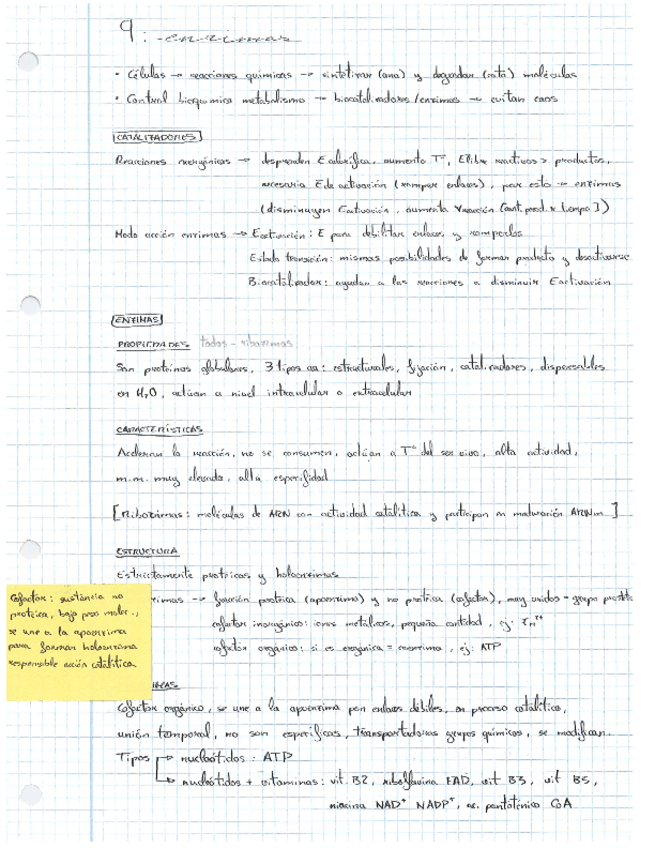 9: enzimas
· Células → reacciones químicas → sintetizar (ana) y degradar (cata) moléculas
· Control bioquímico metabolismo → biocatalizadores/enzimas → evitan caos
CATALIZADORES
Reacciones exergónicas → desprenden E calorífica, aumento Tª, E libre reactivos > productos,
necesaria E de activación (romper enlaces), por esto → enzimas
(disminuyen Eactivación, aumenta Vreacción (cant. prod. x tiempo))
Modo acción enzimas → Eactivación: E para debilitar enlaces y romperlos
Estado transición: mismas posibilidades de formar producto y desactivarse
Biocatalizador: ayudan a las reacciones a disminuir Eactivación
ENZIMAS
PROPIEDADES todas - ribozimas
Son proteínas globulares, 3 tipos aa: estructurales, fijación, catalizadores, dispersables
en H2O, actúan a nivel intracelular o extracelular
CARACTERÍSTICAS
Aceleran la reacción, no se consumen, actúan a Tª del ser vivo, alta actividad,
m.m. muy elevada, alta especifidad
[Ribozimas: moléculas de ARN con actividad catalítica y participan en maduración ARNm]
ESTRUCTURA
Estrictamente proteicas y holoenzimas
zimas → fracción proteica (apoenzima) y no proteica (cofactor), muy unidos = grupo
cofactor inorgánico: iones metálicos, pequeña cantidad, ej:
cofactor orgánico: si es orgánica = coenzima, ej: ATP
Cofactor: sustancia no
proteica, bajo peso molec.,
se une a la apoenzima
para formar holoenzima
responsable acción catalítica
IMAS
Cofactor orgánico, se une a la apoenzima por enlaces débiles, en proceso catalítico,
unión temporal, no son específicas, transportadoras grupos químicos, se modifican
Tipos → nucleótidos: ATP
→ nucleótidos + vitaminas: vit. B2, riboflavina FAD, vit B3, vit B5,
niacina NAD⁺ NADP⁺, ac. pantoténico CoA